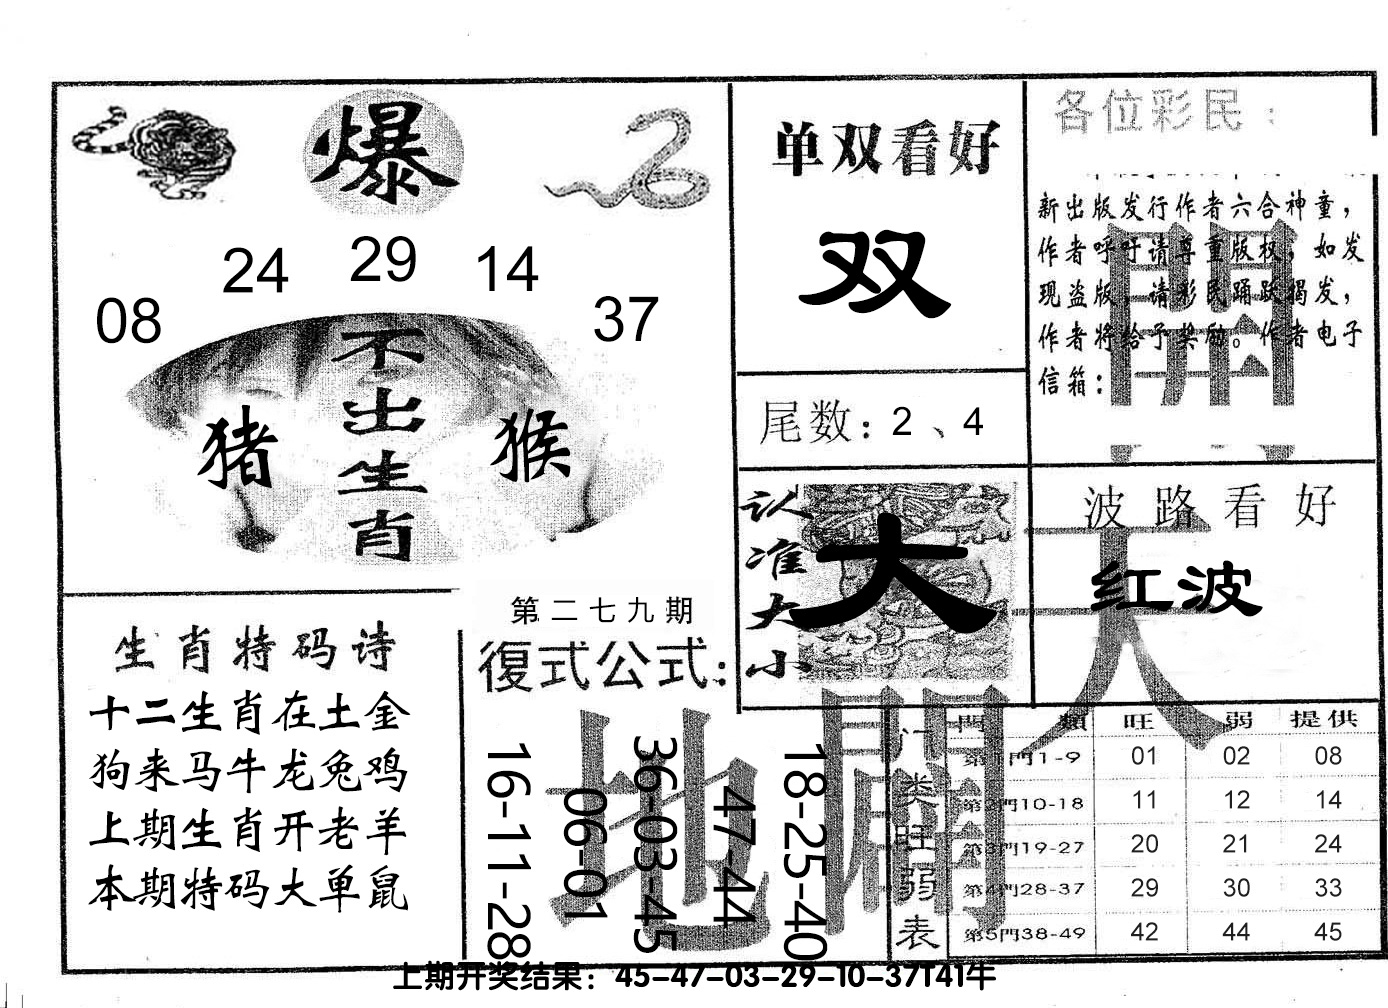 爆
08 24 29 14 37
不出生肖
猪 猴
单双看好
双
尾数：2、4
各位彩民：
新出版发行作者六合神童，
作者呼吁请尊重版权，如发
现盗版，请彩民踊跃揭发，
作者将给予奖励。作者电子
信箱：
開
认准大小
大
波路看好
红波
天
生肖特码诗
十二生肖在土金
狗来马牛龙兔鸡
上期生肖开老羊
本期特码大单鼠
第二七九期
復式公式：
16-11-28
06-01
36-03-45
47-44
18-25-40
地
门类旺弱表
門類 旺 弱 提供
第1門1-9 01 02 08
第2門10-18 11 12 14
第3門19-27 20 21 24
第4門28-37 29 30 33
第5門38-49 42 44 45
上期开奖结果：45-47-03-29-10-37T41牛